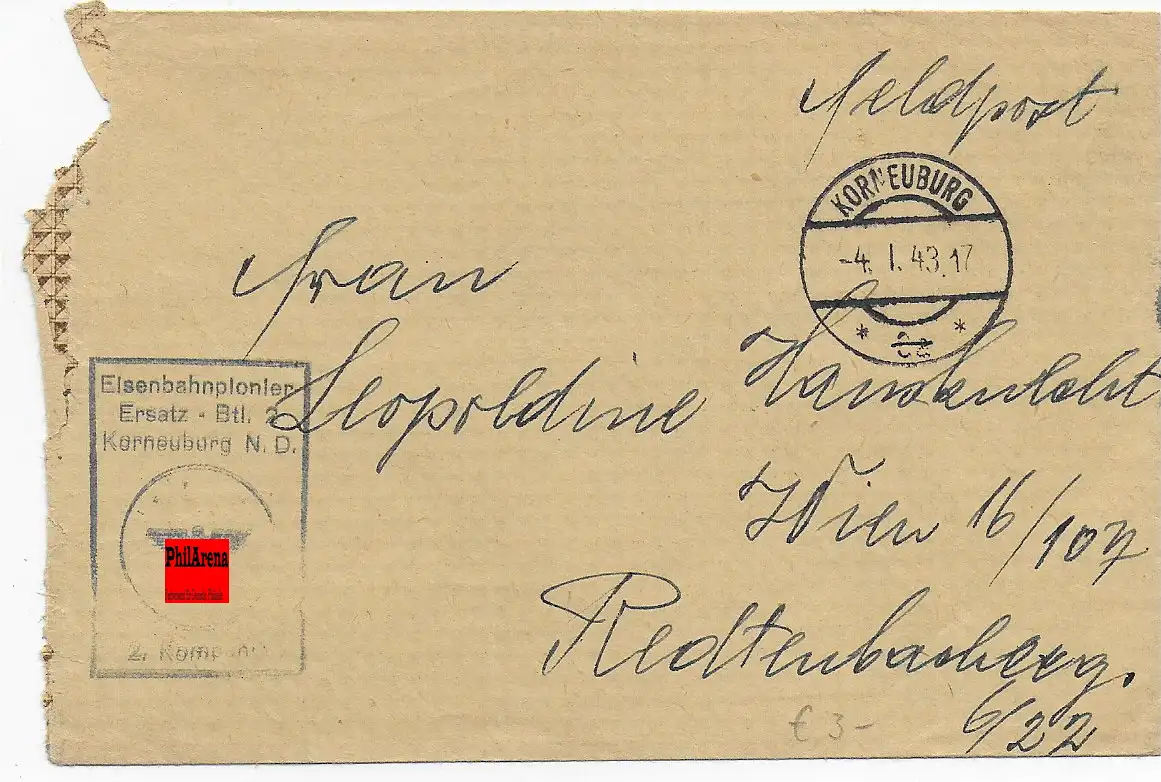 Feldpost
KORNEUBURG
-4. I. 43. 17
Frau
Leopoldine
Wien 16/107
Redtenbacherg.
6/22
Eisenbahnpionier
Ersatz - Btl. 2
Korneuburg N. D.
PhilArena
2. Kompanie
€ 3-